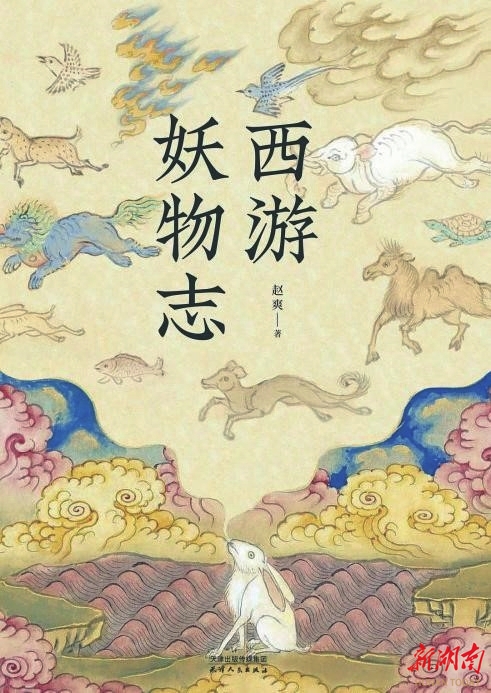 西游
妖物志
赵爽—著
天津出版传媒集团
天津人民出版社
新湖南